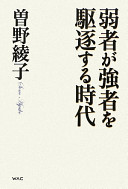 弱者が強者を
駆逐する時代
曽野綾子
WAC